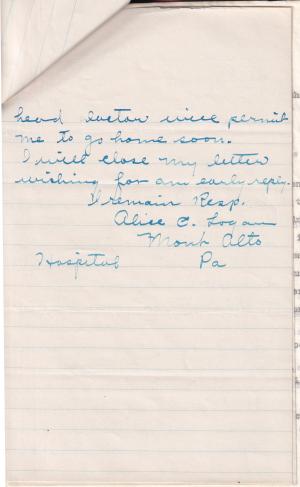 head doctor will permit
me to go home soon.
I will close my letter
wishing for an early reply.
I remain Resp.
Alice C. Logan
Mont Alto
Hospital Pa